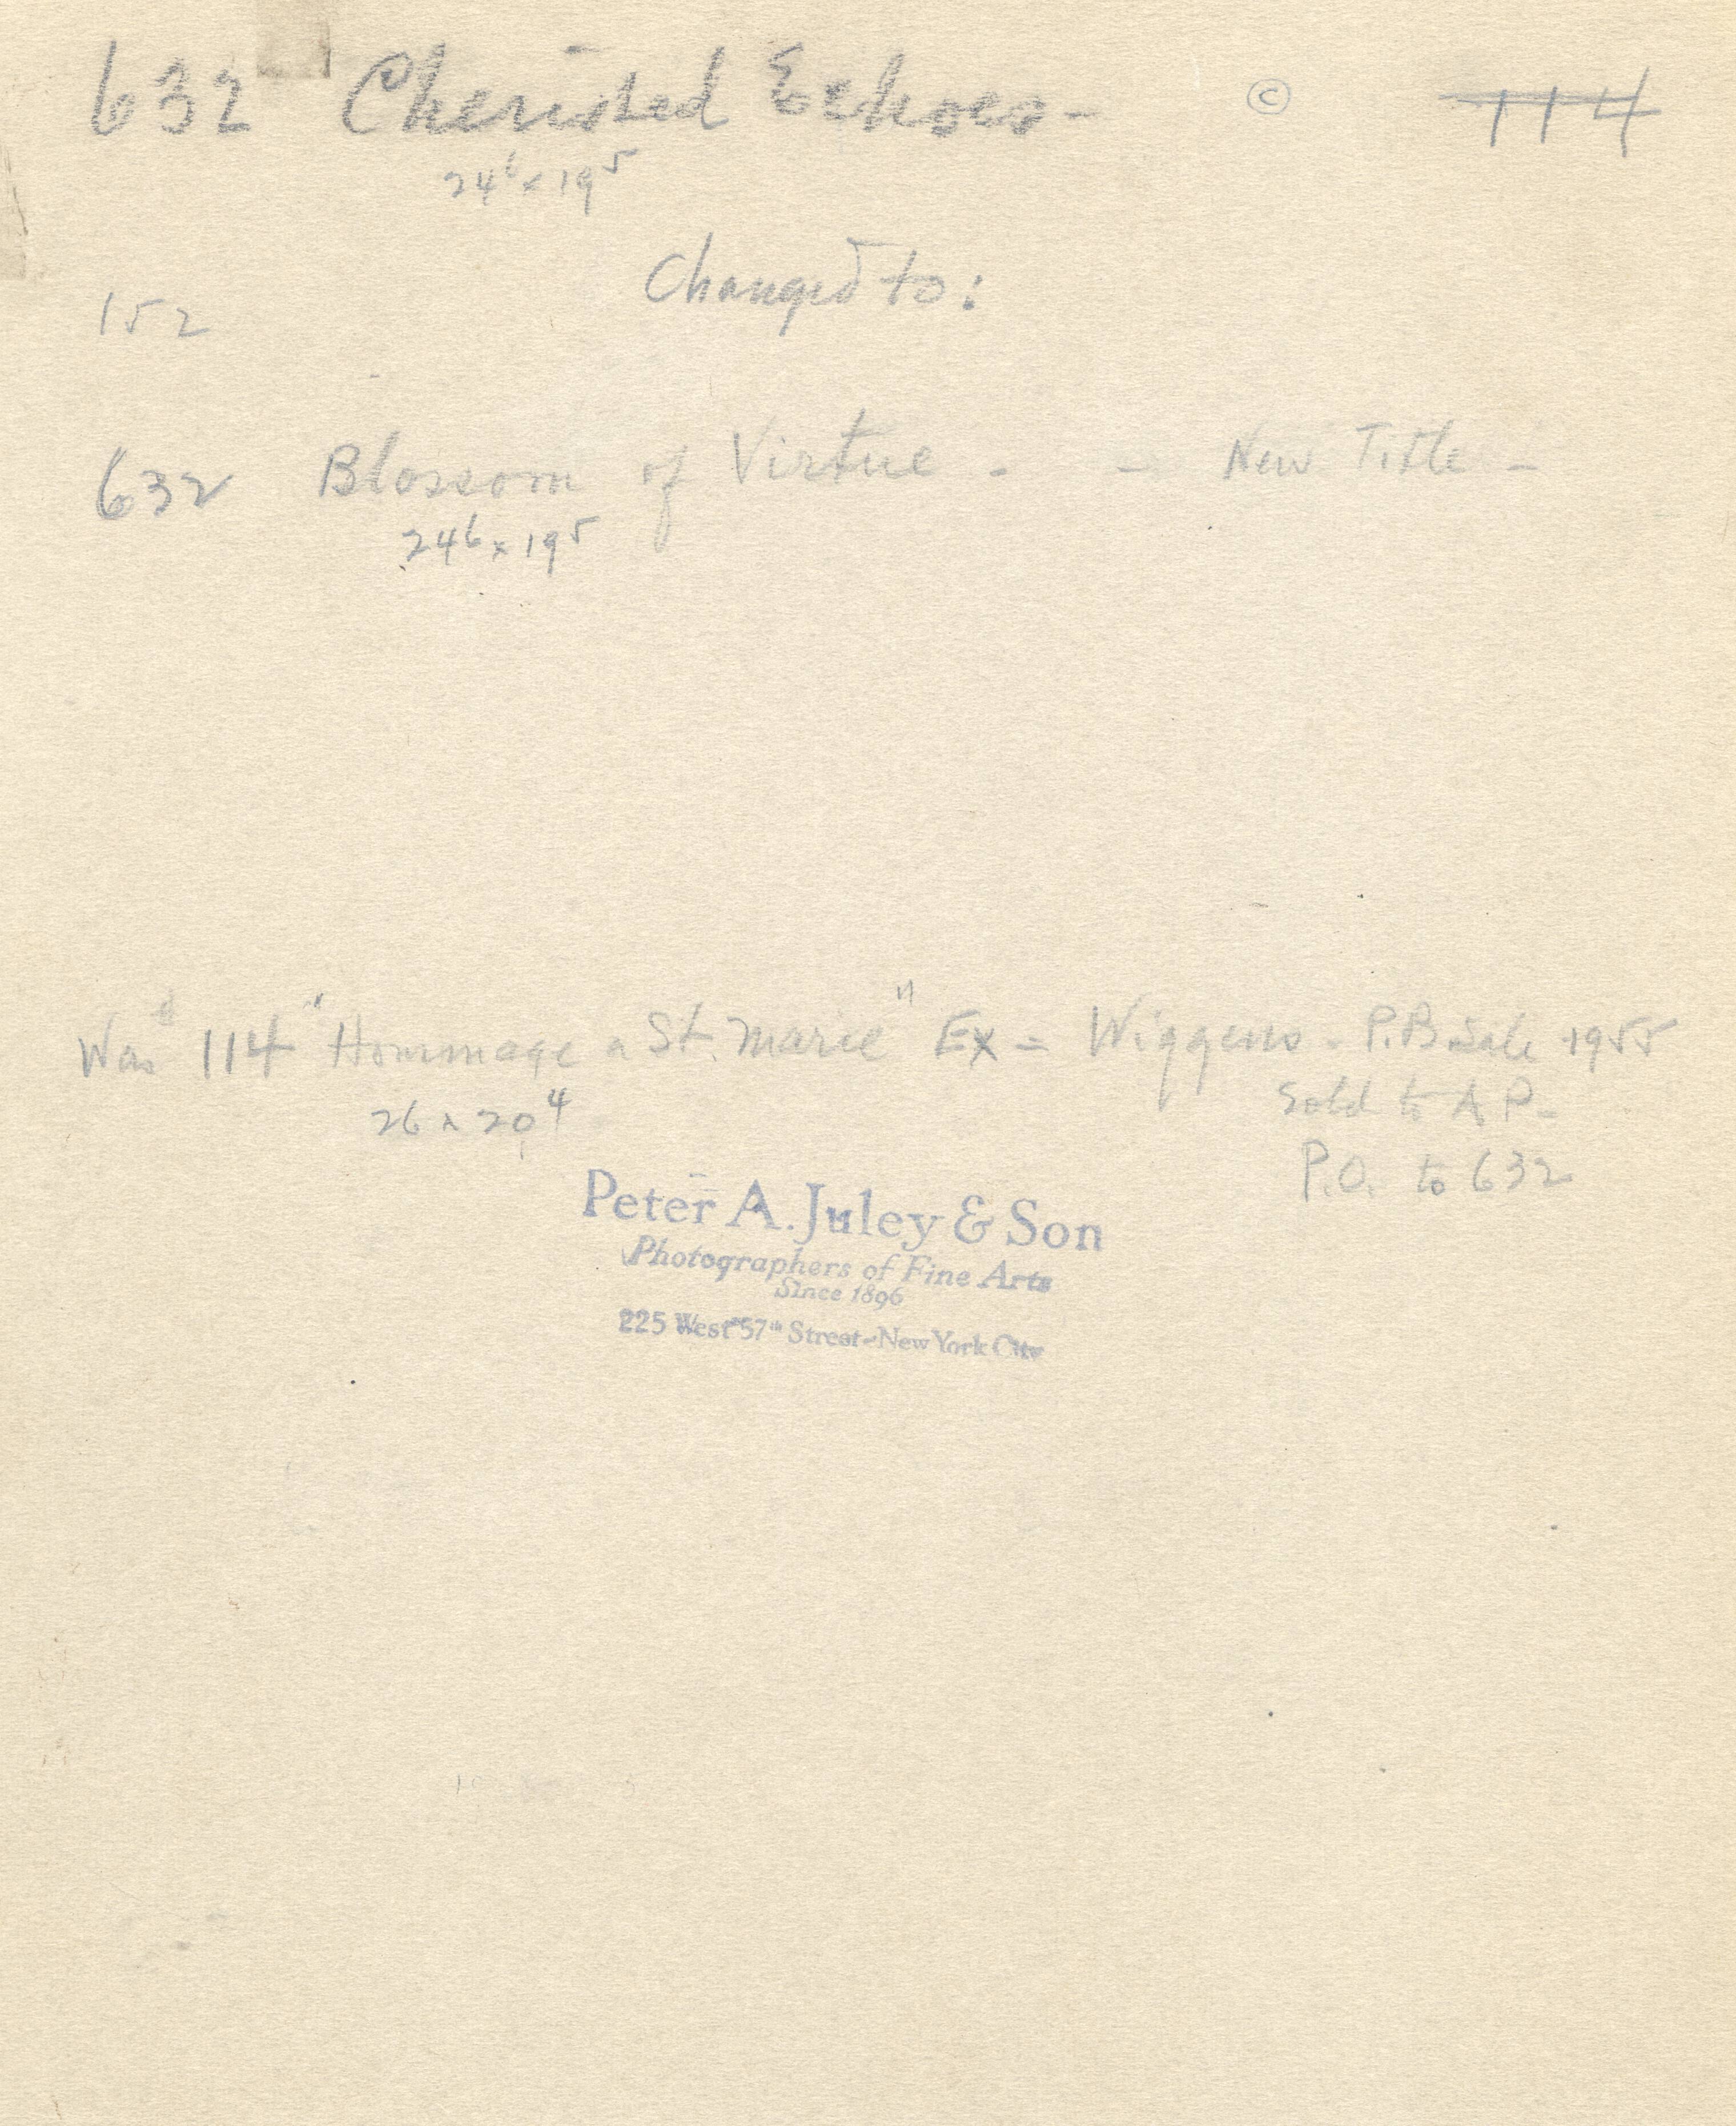 632 Cherished Echoes - © 114
24⁶ x 19⁵
Changed to:
152
632 Blossom of Virtue - - New Title -
24⁶ x 19⁵
Was # 114 "Hommage a St. Marie" Ex = Wiggens - P.B. Sale 1955
26 x 20⁴
Sold to A P -
P.O. to 632
Peter A. Juley & Son
Photographers of Fine Arts
Since 1896
225 West 57th Street-New York City